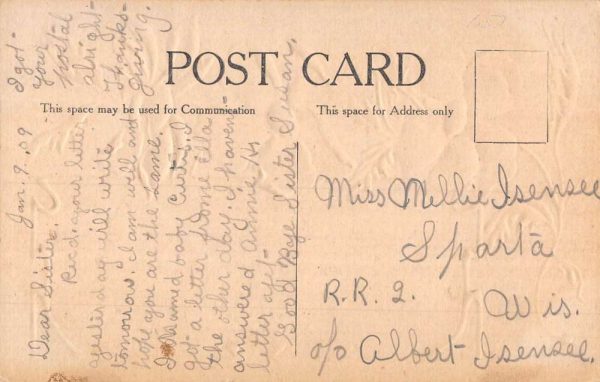 POST CARD
This space may be used for Communication
This space for Address only
Jan. 9. 09
Dear Sister.
Recd. your letter
yesterday will write
tomorrow. I am well and
hope you are the same.
I
got a letter frome Ella
the other day. I haven-
answered Annie
letter yet-
Good Bye Sister Susan.
I got-
your
postal
alright-
Thanks-
giving.
Miss Mellie Isensee
Sparta
R.R. 2.
Wis.
c/o Albert Isensee.